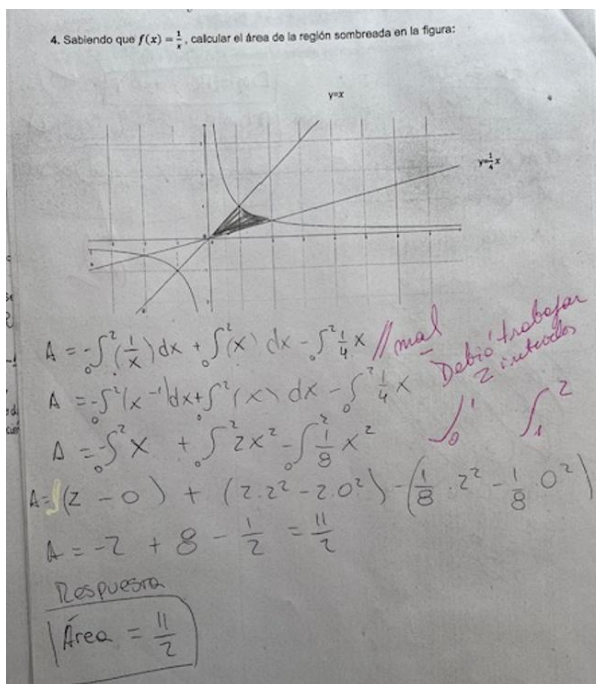 4. Sabiendo que f(x) = 1/x, calcular el área de la región sombreada en la figura:
y=x
y=1/4 x
A = -∫₀² (1/x) dx + ∫₀² (x) dx - ∫₀² 1/4 x // mal
Debió trabajar
2 intervalos
A = -∫₀² (x⁻¹) dx + ∫₀² (x) dx - ∫₀² 1/4 x
∫₀¹ ∫₁²
A = -∫₀² x + ∫₀² 2x² - ∫₀² 1/8 x²
A = (2 - 0) + (2.2² - 2.0²) - (1/8 . 2² - 1/8 . 0²)
A = -2 + 8 - 1/2 = 11/2
Respuesta
Área = 11/2